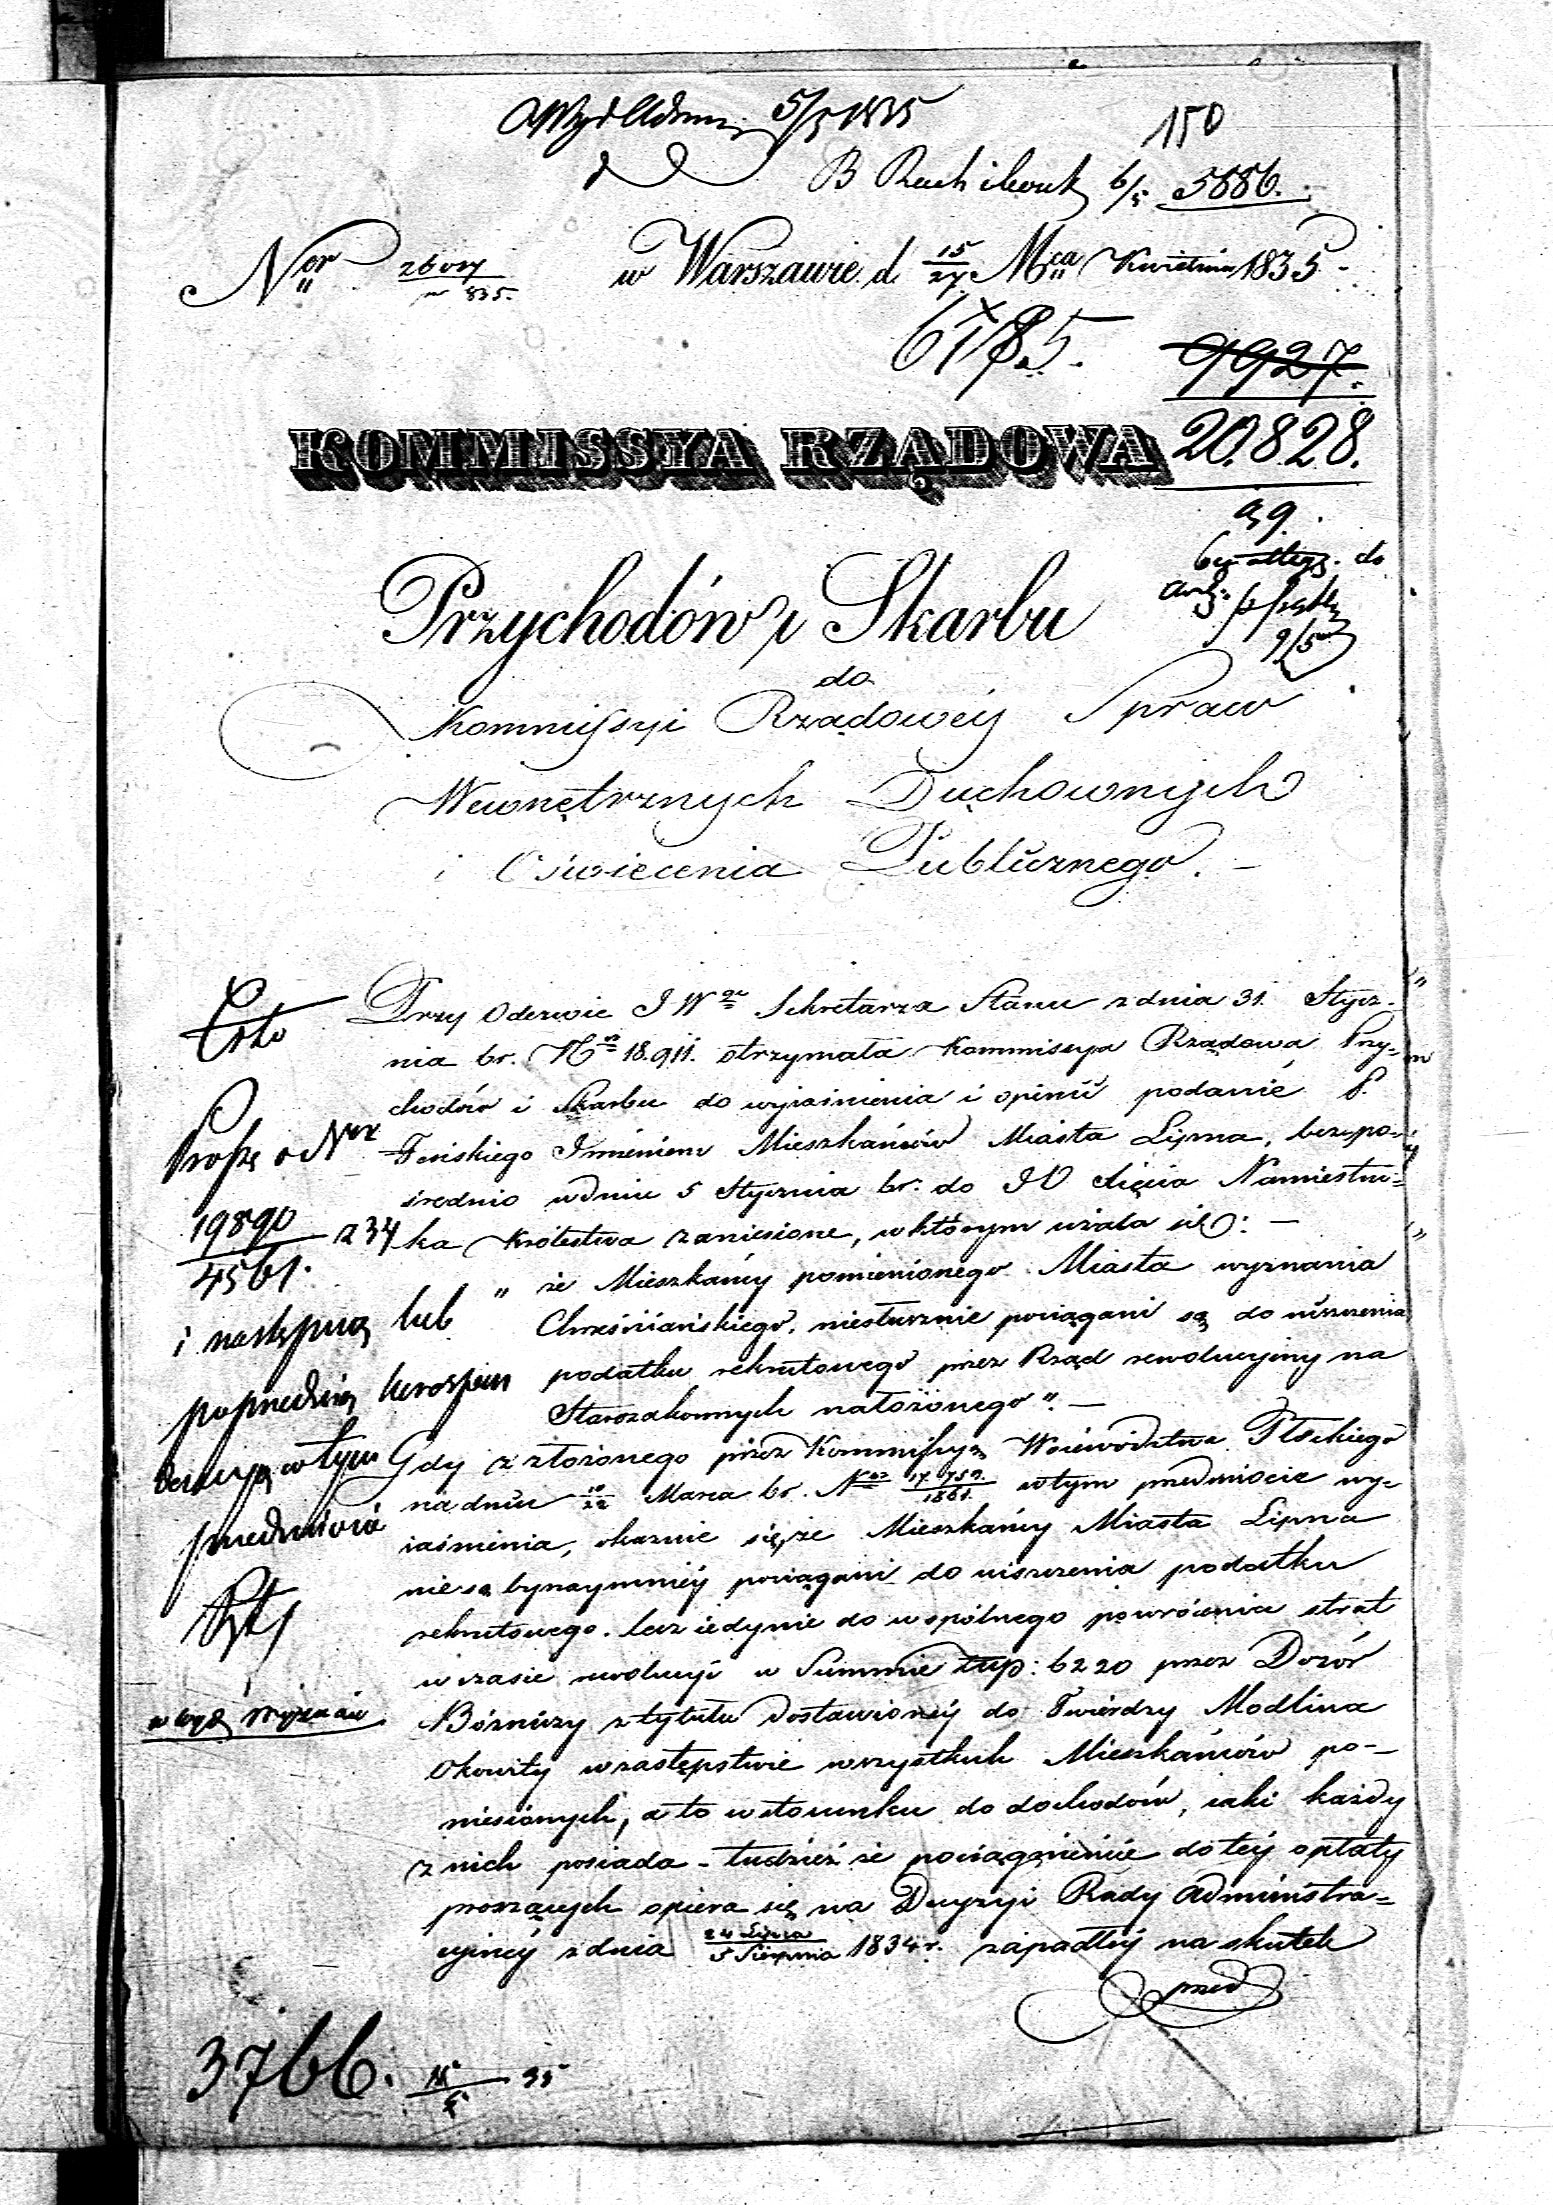 5/5 1835
150
B 6/5 5886.
Ner
w Warszawie d. 15/27 Mca Kwietnia 1835
6185.
9927.
20.828.
KOMMISSYA RZĄDOWA
Przychodów i Skarbu
do
Kommissyi Rządowéy Spraw
Wewnętrznych Duchownych
i Oświecenia Publicznego. –
Przy Odezwie JWgo Sekretarza Stanu z dnia 31. Stycz-
nia br. Nro 18.911. otrzymała Kommissya Rządowa Przy-
chodów i Skarbu do wyiaśnienia i opinii podanie P.
Imieniem Mieszkańców Miasta Lipna, bezpo-
średnio w dniu 5 Stycznia br. do JO Xięcia Namiestni-
ka Królestwa zaniesione, w którym użala się: –
" że Mieszkańcy pomienionego Miasta wyznania
Chrześciańskiego, niesłusznie pociągani są do uiszczenia
podatku rekrutowego przez Rząd rewolucyiny na
Starozakonnych nałożonego". –
Gdy z złożonego przez Kommissyą Woiewództwa Płockiego
na dniu 10/22 Marca br. Nro 17.759/1861. w tym przedmiocie wy-
iaśnienia, okazuie się, że Mieszkańcy Miasta Lipna
nie są bynaymniéy pociągani do uiszczenia podatku
rekrutowego, lecz iedynie do wspólnego powrócenia strat
w czasie rewolucyi w Summie złp: 6220 przez Dozór
Bóżniczy z tytułu dostawionéy do Twierdzy Modlina
Okowity w zastępstwie wszystkich Mieszkańców po-
niesionych, a to w stosunku do dochodów, iaki każdy
z nich posiada – tudzież że pociągnienie do téy opłaty
proszących opiera się na Decyzyi Rady Administra-
cyinéy z dnia 24 Lipca/5 Sierpnia 1834 r. zapadłéy na skutek
przed
Proszę o Nra
19890/4561. z 34
i następną lub
poprzednią
decyzyą w tym
przedmiocie
3766.